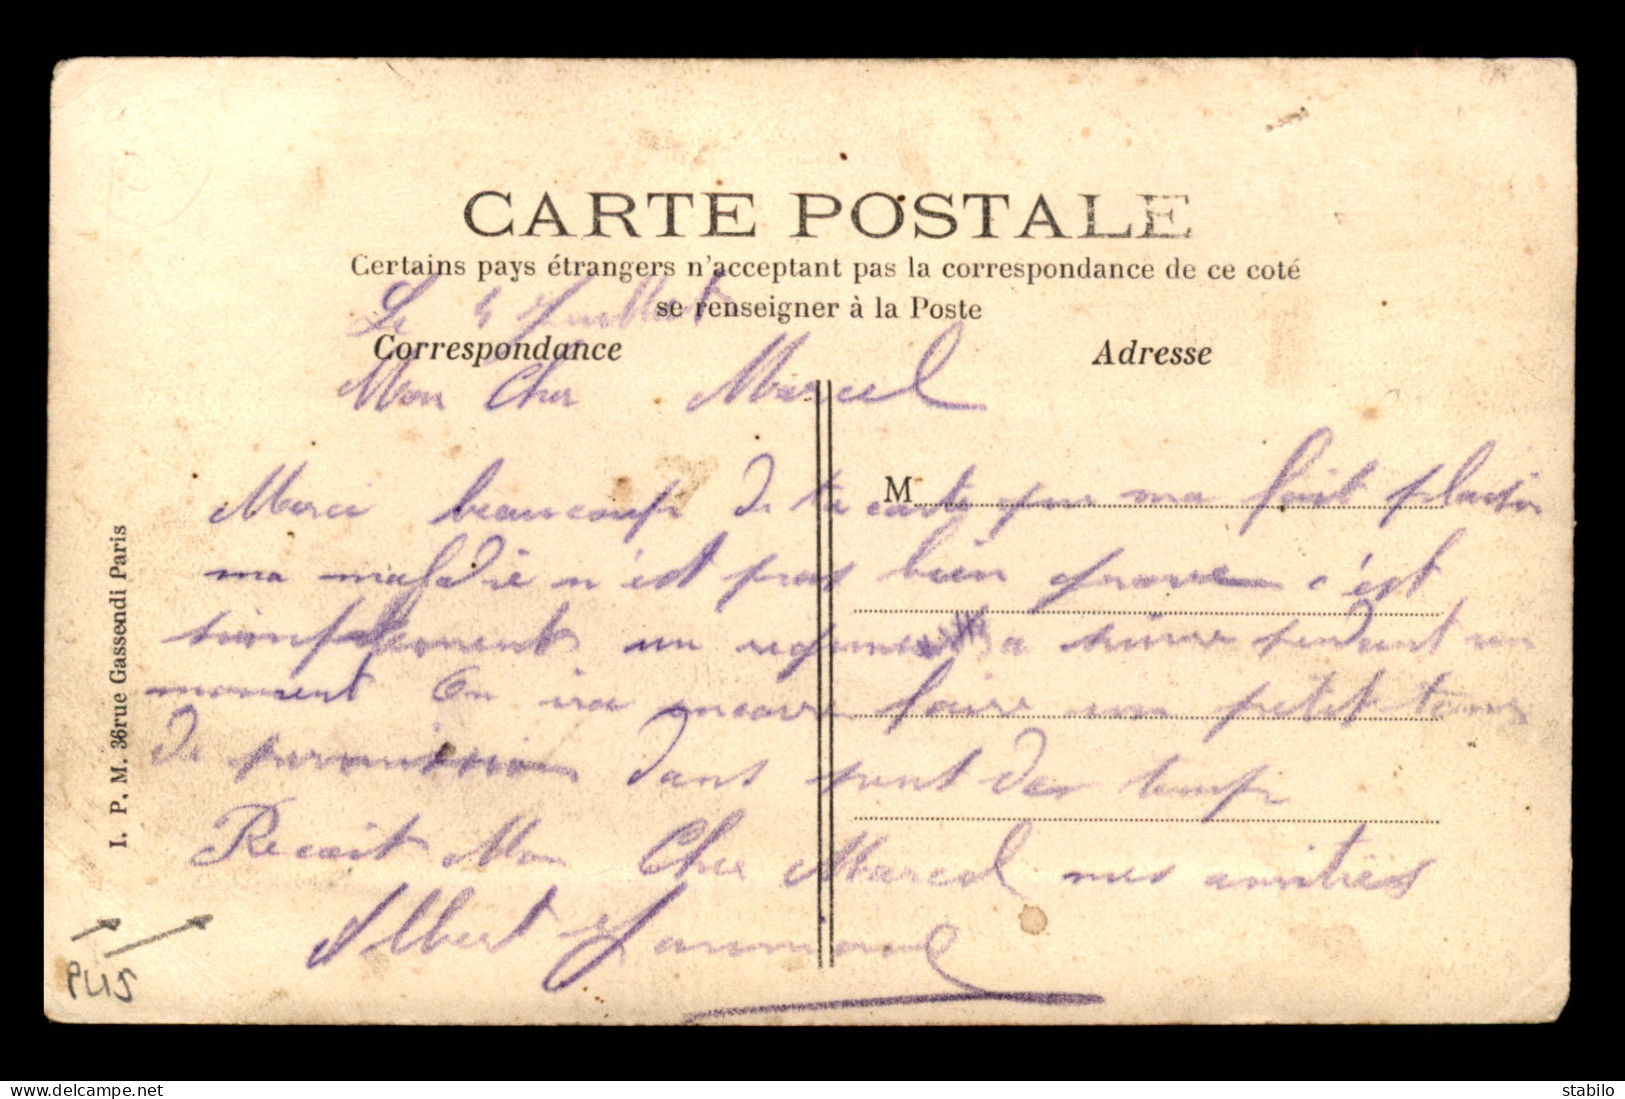 CARTE POSTALE
Certains pays étrangers n'acceptant pas la correspondance de ce coté
se renseigner à la Poste
Le 4 Juillet
Correspondance
Adresse
Mon Cher Marcel
M
Merci beaucoup de ta carte que ma fait plaisir
ma maladie n'est pas bien grave c'est
simplement un regime a suivre pendant un
moment On ira encore faire un petit tour
de permission dans peut de temp
Recoit Mon Cher Marcel mes amitiés
Albert
I. P. M. 36 rue Gassendi Paris
PLIS
Delcampe.net
stabilo